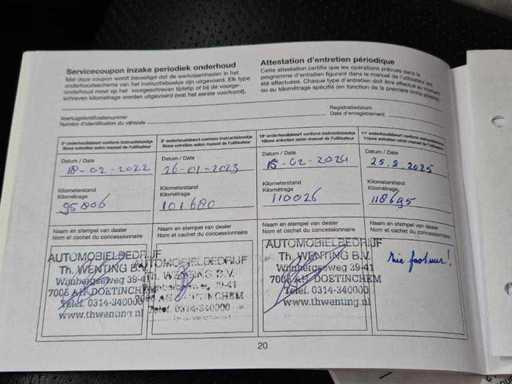 Servicecoupon inzake periodiek onderhoud
Met deze coupon wordt bevestigd dat de werkzaamheden in het
onderhoudsschema van het instructieboekje zijn uitgevoerd. Elk type
onderhoud moet op het voorgeschreven tijdstip of bij de voorge-
schreven kilometrage worden uitgevoerd (wat het eerste voorkomt).
Attestation d'entretien périodique
Cette attestation certifie que les opérations prévues dans le
programme d'entretien figurant dans le manuel de l'utilisateur ont
été effectuées. Chaque type d'entretien doit être effectué
ou au kilométrage spécifié (en fonction de la première
Voertuigidentificatienummer
Numéro d'identification du véhicule
Registratiedatum
Date d'enregistrement
onderhoudsbeurt conform instructieboekje
entretien selon manuel de l'utilisateur
onderhoudsbeurt conform instructieboekje
entretien selon manuel de l'utilisateur
10e onderhoudsbeurt conform instructieboekje
10ème entretien selon manuel de l'utilisateur
11e onderhoudsbeurt conform instructieboekje
11ème entretien selon manuel de l'utilisateur
Datum / Date
18-02-2022
Datum / Date
26-01-2023
Datum / Date
15-02-2024
Datum / Date
25.2.2025
Kilometerstand
Kilométrage
Kilometerstand
Kilométrage
101680
Kilometerstand
Kilométrage
110026
Kilometerstand
Kilométrage
118695
Naam en stempel van dealer
Nom et cachet du concessionnaire
Naam en stempel van dealer
Nom et cachet du concessionnaire
Naam en stempel van dealer
Nom et cachet du concessionnaire
Naam en stempel van dealer
Nom et cachet du concessionnaire
AUTOMOBIELBEDRIJF
Th. WENTING B.V.
Wijnbergseweg 39-41
7006 AH DOETINCHEM
Telef. 0314-340000
www.thwenting.nl
AUTOMOBIELBEDRIJF
Th. WENTING B.V.
Wijnbergseweg 39-41
7006 AH DOETINCHEM
Telef. 0314-340000
www.thwenting.nl
20